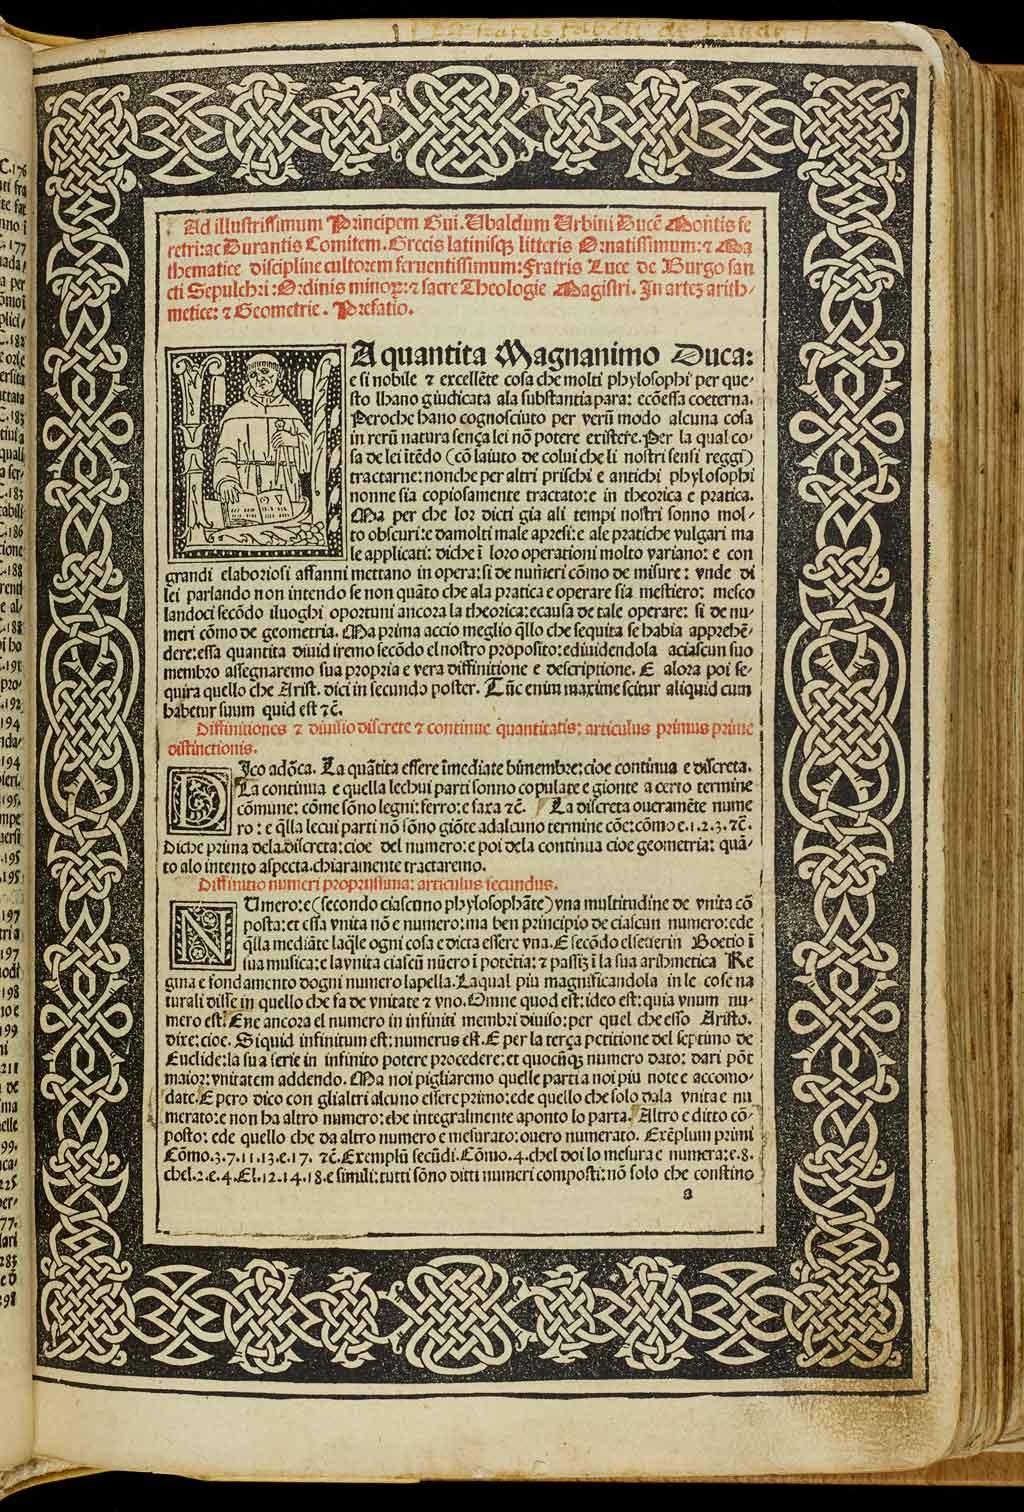 Ad illustrissimum Principem Gui. Ubaldum Urbini Ducē Montis fe
retri: ac Durantis Comitem. Grecis latinisqȝ litteris Ornatissimum: ⁊ Ma
thematice discipline cultorem feruentissimum: Fratris Luce de Burgo san
cti Sepulchri: Ordinis minoꝝ: ⁊ sacre Theologie Magistri. In arteȝ arith⸗
metice: ⁊ Geometrie. Prefatio.
A quantita Magnanimo Duca:
e si nobile ⁊ excellēte cosa che molti phylosophi per que⸗
sto lhano giudicata ala substantia para: ecōessa coeterna.
Peroche hano cognosciuto per verū modo alcuna cosa
in rerū natura sença lei nō potere existere. Per la qual co⸗
sa de lei ītēdo (cō laiuto de colui che li nostri sensi reggi)
tractarne: nonche per altri prischi e antichi phylosophi
nonne sia copiosamente tractato: e in theorica e pratica.
Ma per che lor dicti gia ali tempi nostri sonno mol⸗
to obscuri: e da molti male apresi: e ale pratiche vulgari ma
le applicati: diche ī loro operationi molto variano: e con
grandi elaboriosi affanni mettano in opera: si de numeri cōmo de misure: vnde di
lei parlando non intendo se non quāto che ala pratica e operare sia mestiero: mesco
landoci secōdo iluoghi oportuni ancora la theorica: ecausa de tale operare: si de nu⸗
meri cōmo de geometria. Ma prima accio meglio qllo che sequita se habia apprehē⸗
dere: essa quantita diuidiremo secōdo el nostro proposito: ediuidendola aciascun suo
membro assegnaremo sua propria e vera diffinitione e descriptione. E alora poi se⸗
quira quello che Arist. dici in secundo poster. Tūc enim maxime scitur aliquid cum
habetur suum quid est ⁊c̄.
Diffinitiones ⁊ diuisio discrete ⁊ continue quantitatis: articulus primus prime
distinctionis.
DIco adōca. La quātita essere īmediate bimembre: cioe continua e discreta.
La continua e quella lechui parti sonno copulate e gionte a certo termine
cōmune: cōme sōno legni: ferro: e saxa ⁊c̄. La discreta oueramēte nume
ro: e qlla lecui parti nō sōno giōte adalcuno termine cōe: cōmo e.1.2.3. ⁊c̄.
Diche prima dela discreta: cioe del numero: e poi dela continua cioe geometria: quā⸗
to alo intento aspecta. chiaramente tractaremo.
Diffinitio numeri propriissima: articulus secundus.
NUmero: e (secondo ciascuno phylosophāte) vna multitudine de vnita cō
posta: et essa vnita nō e numero: ma ben principio de ciascun numero: ede
qlla mediāte laqle ogni cosa e dicta essere vna. E secōdo el seuerin Boetio ī
sua musica: e la vnita ciascū nūero ī potētia: ⁊ passiȝ ī la sua arithmetica Re
gina e fondamento dogni numero lapella. Laqual piu magnificandola in le cose na
turali disse in quello che fa de vnitate ⁊ vno. Omne quod est: ideo est: quia vnum nu⸗
mero est. Ene ancora el numero in infiniti membri diuiso: per quel che esso Aristo.
dixe: cioe. Siquid infinitum est: numerus est. E per la terça petitione del septimo de
Euclide: la sua serie in infinito potere procedere: et quocūqȝ numero dato: dari pōt
maior: vnitatem addendo. Ma noi pigliaremo quelle parti a noi piu note e accomo⸗
date. E pero dico con gli altri alcuno essere primo: ede quello che solo dala vnita e nu
merato: e non ha altro numero: che integralmente aponto lo parta. Altro e ditto cō⸗
posto: ede quello che da altro numero e mesurato: ouero numerato. Exēplum primi
Cōmo.3.7.11.13.e.17. ⁊c̄. Exemplū secūdi. Cōmo.4.chel doi lo mesura e numera: e.8.
chel.2.e.4.El.12.14.18.e simili: tutti sōno ditti numeri composti: nō solo che constino
a